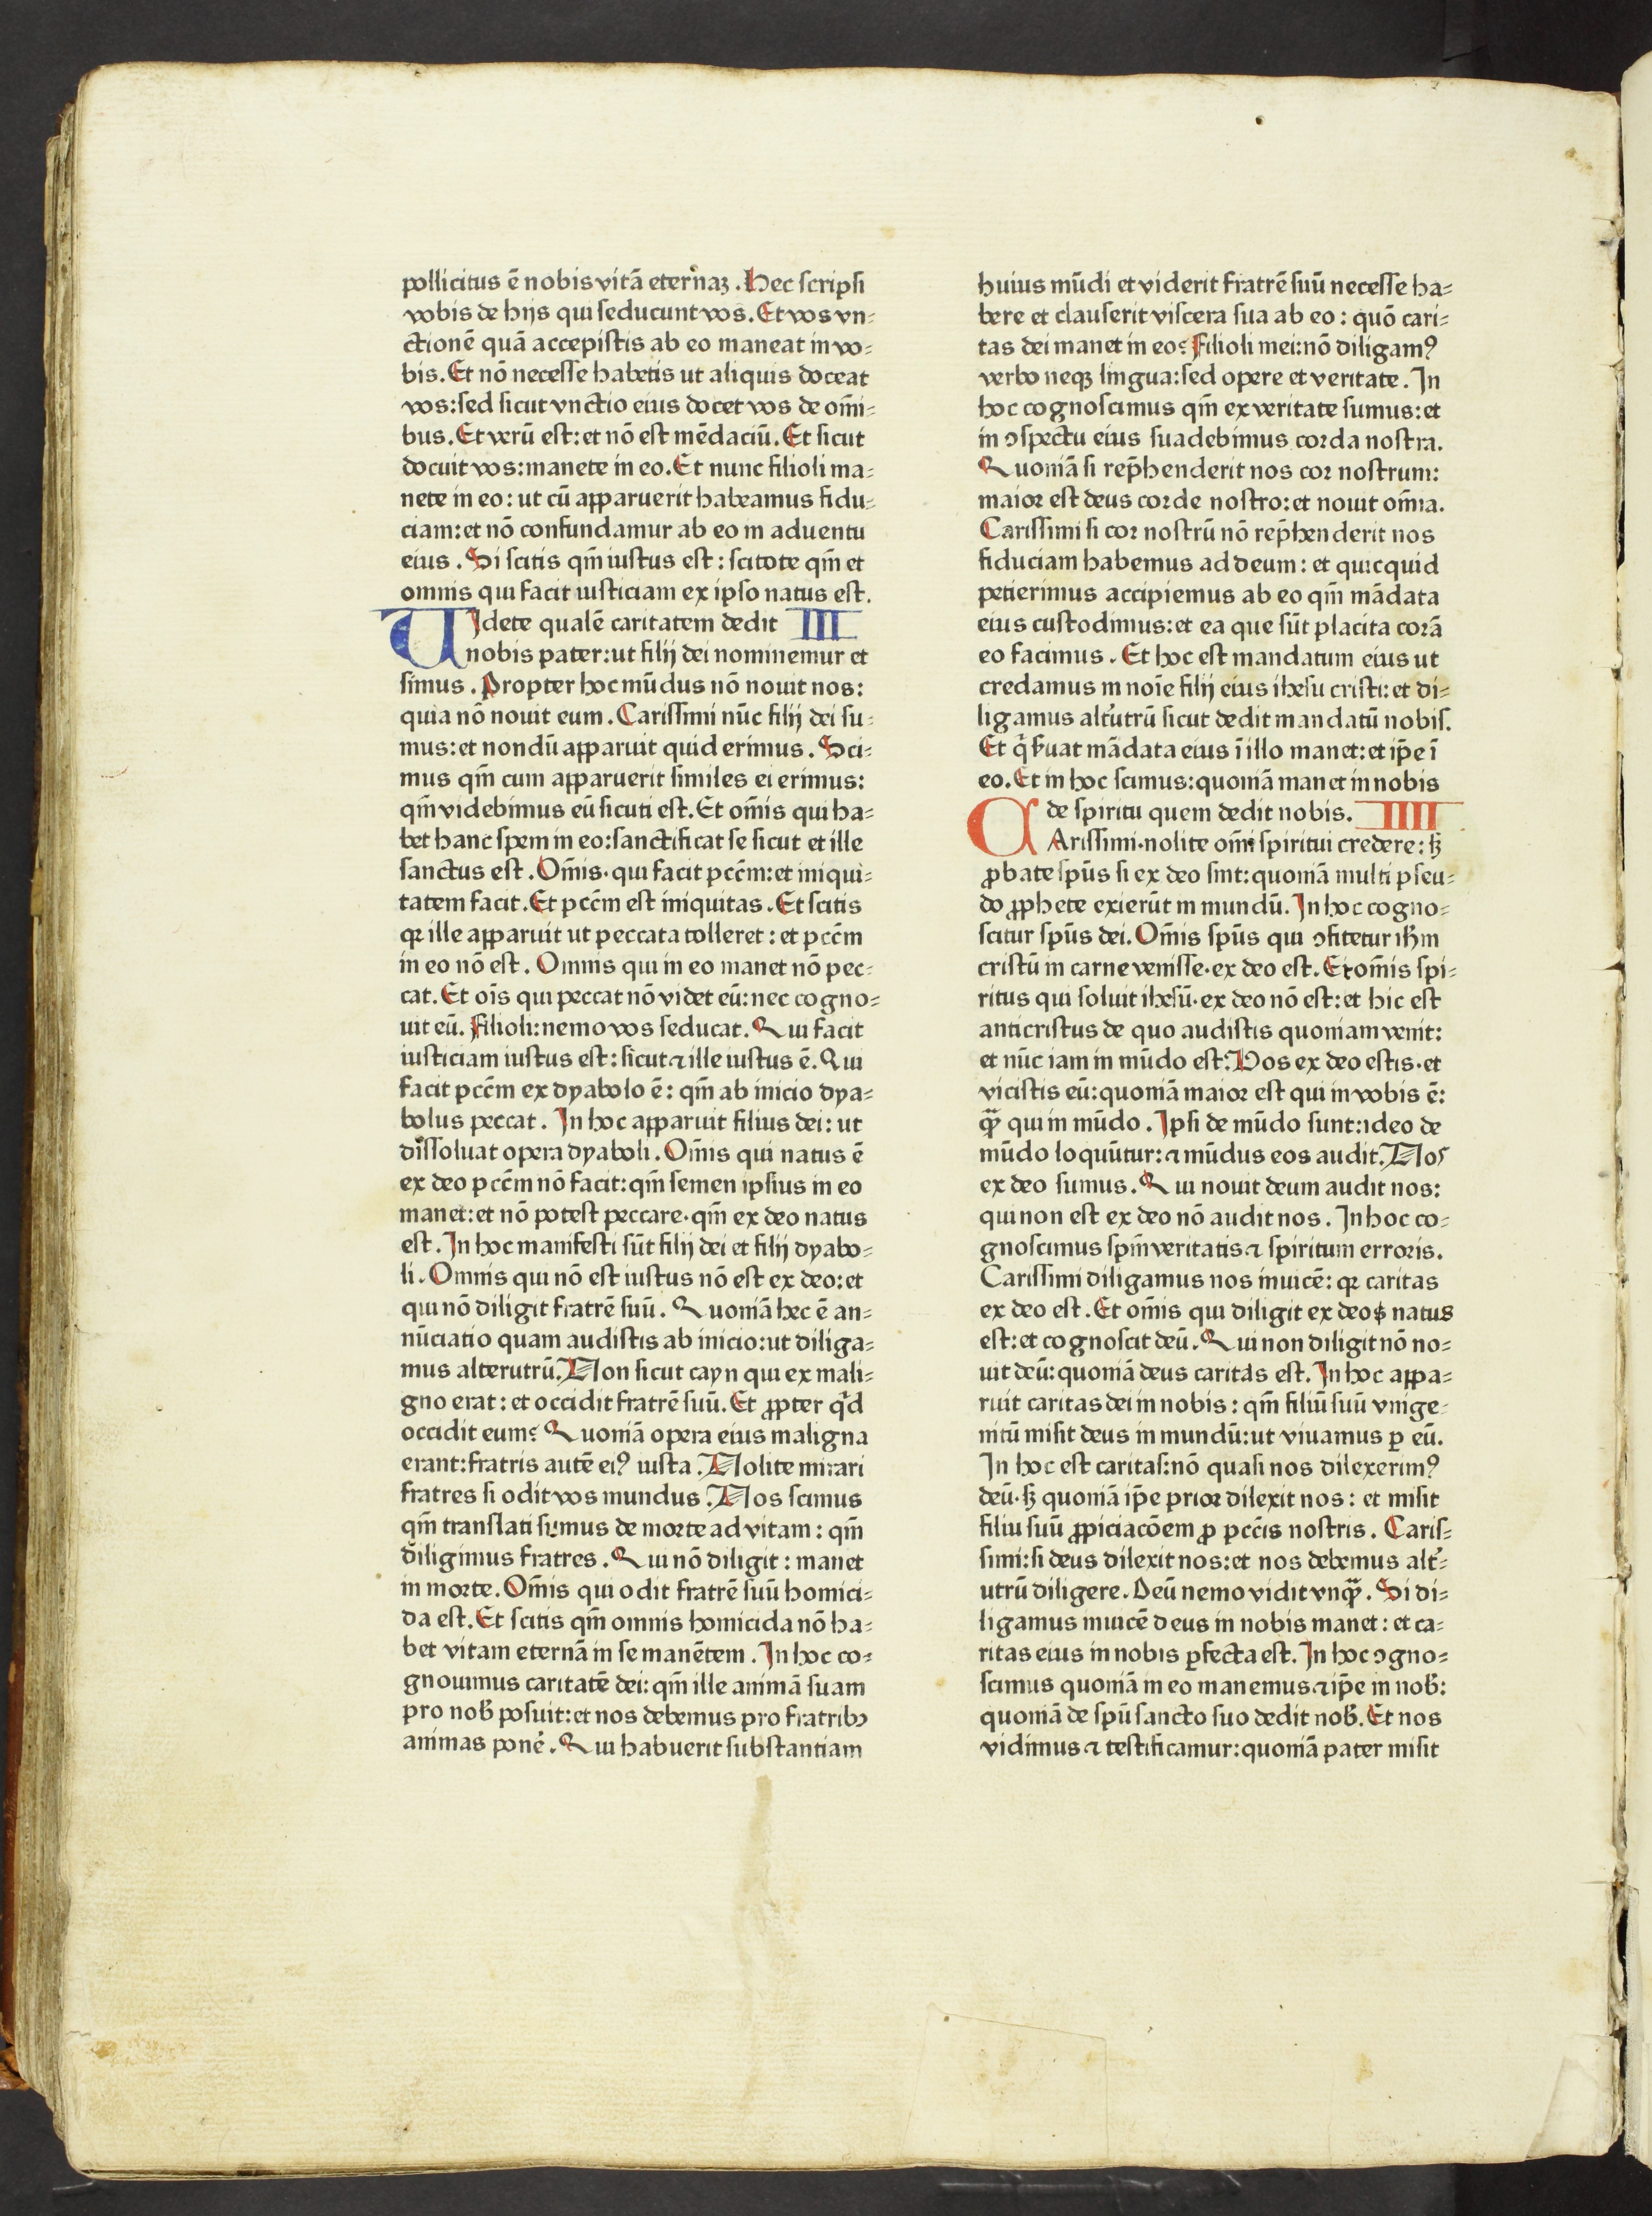 pollicitus ē nobis vitā eternaꝫ. Hec scripsi
vobis de hijs qui seducunt vos. Et vos vn⸗
ctionē quā accepistis ab eo maneat in vo⸗
bis. Et nō necesse habetis ut aliquis doceat
vos: sed sicut vnctio eius docet vos de om̄i⸗
bus. Et verū est: et nō est mēdaciū. Et sicut
docuit vos: manete in eo. Et nunc filioli ma⸗
nete in eo: ut cū apparuerit habeamus fidu⸗
ciam: et nō confundamur ab eo in aduentu
eius. Si scitis qm̄ iustus est: scitote qm̄ et
omnis qui facit iusticiam ex ipso natus est.
VIdete qualē caritatem dedit III
nobis pater: ut filij dei nominemur et
simus. Propter hoc mūdus nō nouit nos:
quia nō nouit eum. Carissimi nūc filij dei su⸗
mus: et nondū apparuit quid erimus. Sci⸗
mus qm̄ cum apparuerit similes ei erimus:
qm̄ videbimus eū sicuti est. Et om̄is qui ha⸗
bet hanc spem in eo: sanctificat se sicut et ille
sanctus est. Om̄is· qui facit pccm̄: et iniqui⸗
tatem facit. Et pccm̄ est iniquitas. Et scitis
qꝛ ille apparuit ut peccata tolleret: et pccm̄
in eo nō est. Omnis qui in eo manet nō pec⸗
cat. Et oīs qui peccat nō videt eū: nec cogno⸗
uit eū. Filioli: nemo vos seducat. Qui facit
iusticiam iustus est: sicut ⁊ ille iustus ē. Qui
facit pccm̄ ex dyabolo ē: qm̄ ab inicio dya⸗
bolus peccat. In hoc apparuit filius dei: ut
dissoluat opera dyaboli. Om̄is qui natus ē
ex deo pccm̄ nō facit: qm̄ semen ipsius in eo
manet: et nō potest peccare· qm̄ ex deo natus
est. In hoc manifesti sūt filij dei et filij dyabo⸗
li. Omnis qui nō est iustus nō est ex deo: et
qui nō diligit fratrē suū. Quoniā hec ē an⸗
nūciatio quam audistis ab inicio: ut diliga⸗
mus alterutrū. Non sicut cayn qui ex mali⸗
gno erat: et occidit fratrē suū. Et ꝓpter qd̄
occidit eum? Quoniā opera eius maligna
erant: fratris autē eiꝰ iusta. Nolite mirari
fratres si odit vos mundus. Nos scimus
qm̄ translati sumus de morte ad vitam: qm̄
diligimus fratres. Qui nō diligit: manet
in morte. Om̄is qui odit fratrē suū homici⸗
da est. Et scitis qm̄ omnis homicida nō ha⸗
bet vitam eternā in se manētem. In hoc co⸗
gnouimus caritatē dei: qm̄ ille animā suam
pro nob̄ posuit: et nos debemus pro fratribꝫ
animas ponē. Qui habuerit substantiam
huius mūdi et viderit fratrē suū necesse ha⸗
bere et clauserit viscera sua ab eo: quō cari⸗
tas dei manet in eo? Filioli mei: nō diligamꝰ
verbo neqꝫ lingua: sed opere et veritate. In
hoc cognoscimus qm̄ ex veritate sumus: et
in ꝯspectu eius suadebimus corda nostra.
Quoniā si rep̄henderit nos cor nostrum:
maior est deus corde nostro: et nouit om̄ia.
Carissimi si cor nostrū nō rep̄henderit nos
fiduciam habemus ad deum: et quicquid
petierimus accipiemus ab eo qm̄ mādata
eius custodimus: et ea que sūt placita corā
eo facimus. Et hoc est mandatum eius ut
credamus in noīe filij eius ihesu cristi: et di⸗
ligamus alt̓utrū sicut dedit mandatū nobis.
Et q̄ s̓uat mādata eius ī illo manet: et ip̄e ī
eo. Et in hoc scimus: quoniā manet in nobis
de spiritu quem dedit nobis. IIII
CArissimi· nolite om̄i spiritui credere: sꝫ
ꝓbate spūs si ex deo sint: quoniā multi pseu⸗
do ꝓphete exierūt in mundū. In hoc cogno⸗
scitur spūs dei. Om̄is spūs qui ꝯfitetur ihm̄
cristū in carne venisse· ex deo est. Et om̄is spi⸗
ritus qui soluit ihesū· ex deo nō est: et hic est
anticristus de quo audistis quoniam venit:
et nūc iam in mūdo est. Vos ex deo estis· et
vicistis eū: quoniā maior est qui in vobis ē:
qꝫ̄ qui in mūdo. Ipsi de mūdo sunt: ideo de
mūdo loquūtur: ⁊ mūdus eos audit. Nos
ex deo sumus. Qui nouit deum audit nos:
qui non est ex deo nō audit nos. In hoc co⸗
gnoscimus spm̄ veritatis ⁊ spiritum erroris.
Carissimi diligamus nos inuicē: qꝛ caritas
ex deo est. Et om̄is qui diligit ex deo natus
est: et cognoscit deū. Qui non diligit nō no⸗
uit deū: quoniā deus caritas est. In hoc appa⸗
ruit caritas dei in nobis: qm̄ filiū suū vnige⸗
nitū misit deus in mundū: ut viuamus ꝑ eū.
In hoc est caritas: nō quasi nos dilexerimꝰ
deū· sꝫ quoniā ip̄e prior dilexit nos: et misit
filiu suū ꝓpiciacōem ꝓ pcc̄is nostris. Caris⸗
simi: si deus dilexit nos: et nos debemus alt̓⸗
utrū diligere. Deū nemo vidit vnqꝫ̄. Si di⸗
ligamus inuicē deus in nobis manet: et ca⸗
ritas eius in nobis ꝑfecta est. In hoc ꝯgno⸗
scimus quoniā in eo manemus ⁊ ip̄e in nob̄:
quoniā de spū sancto suo dedit nob̄. Et nos
vidimus ⁊ testificamur: quoniā pater misit